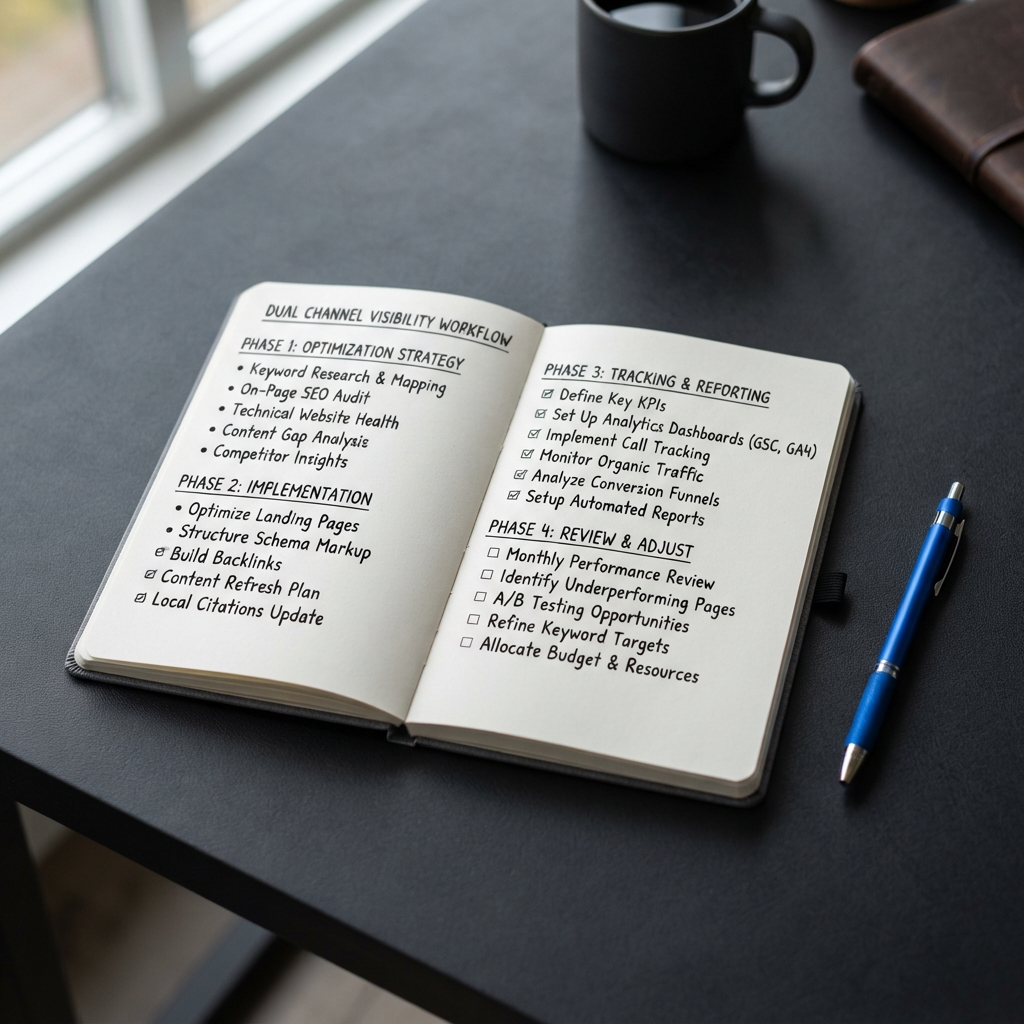 DUAL CHANNEL VISIBILITY WORKFLOW
PHASE 1: OPTIMIZATION STRATEGY
• Keyword Research & Mapping
• On-Page SEO Audit
• Technical Website Health
• Content Gap Analysis
• Competitor Insights
PHASE 2: IMPLEMENTATION
• Optimize Landing Pages
• Structure Schema Markup
☑ Build Backlinks
☑ Content Refresh Plan
☑ Local Citations Update
PHASE 3: TRACKING & REPORTING
☑ Define Key KPIs
☑ Set Up Analytics Dashboards (GSC, GA4)
☑ Implement Call Tracking
☑ Monitor Organic Traffic
☑ Analyze Conversion Funnels
☑ Setup Automated Reports
PHASE 4: REVIEW & ADJUST
☐ Monthly Performance Review
☐ Identify Underperforming Pages
☐ A/B Testing Opportunities
☐ Refine Keyword Targets
☐ Allocate Budget & Resources